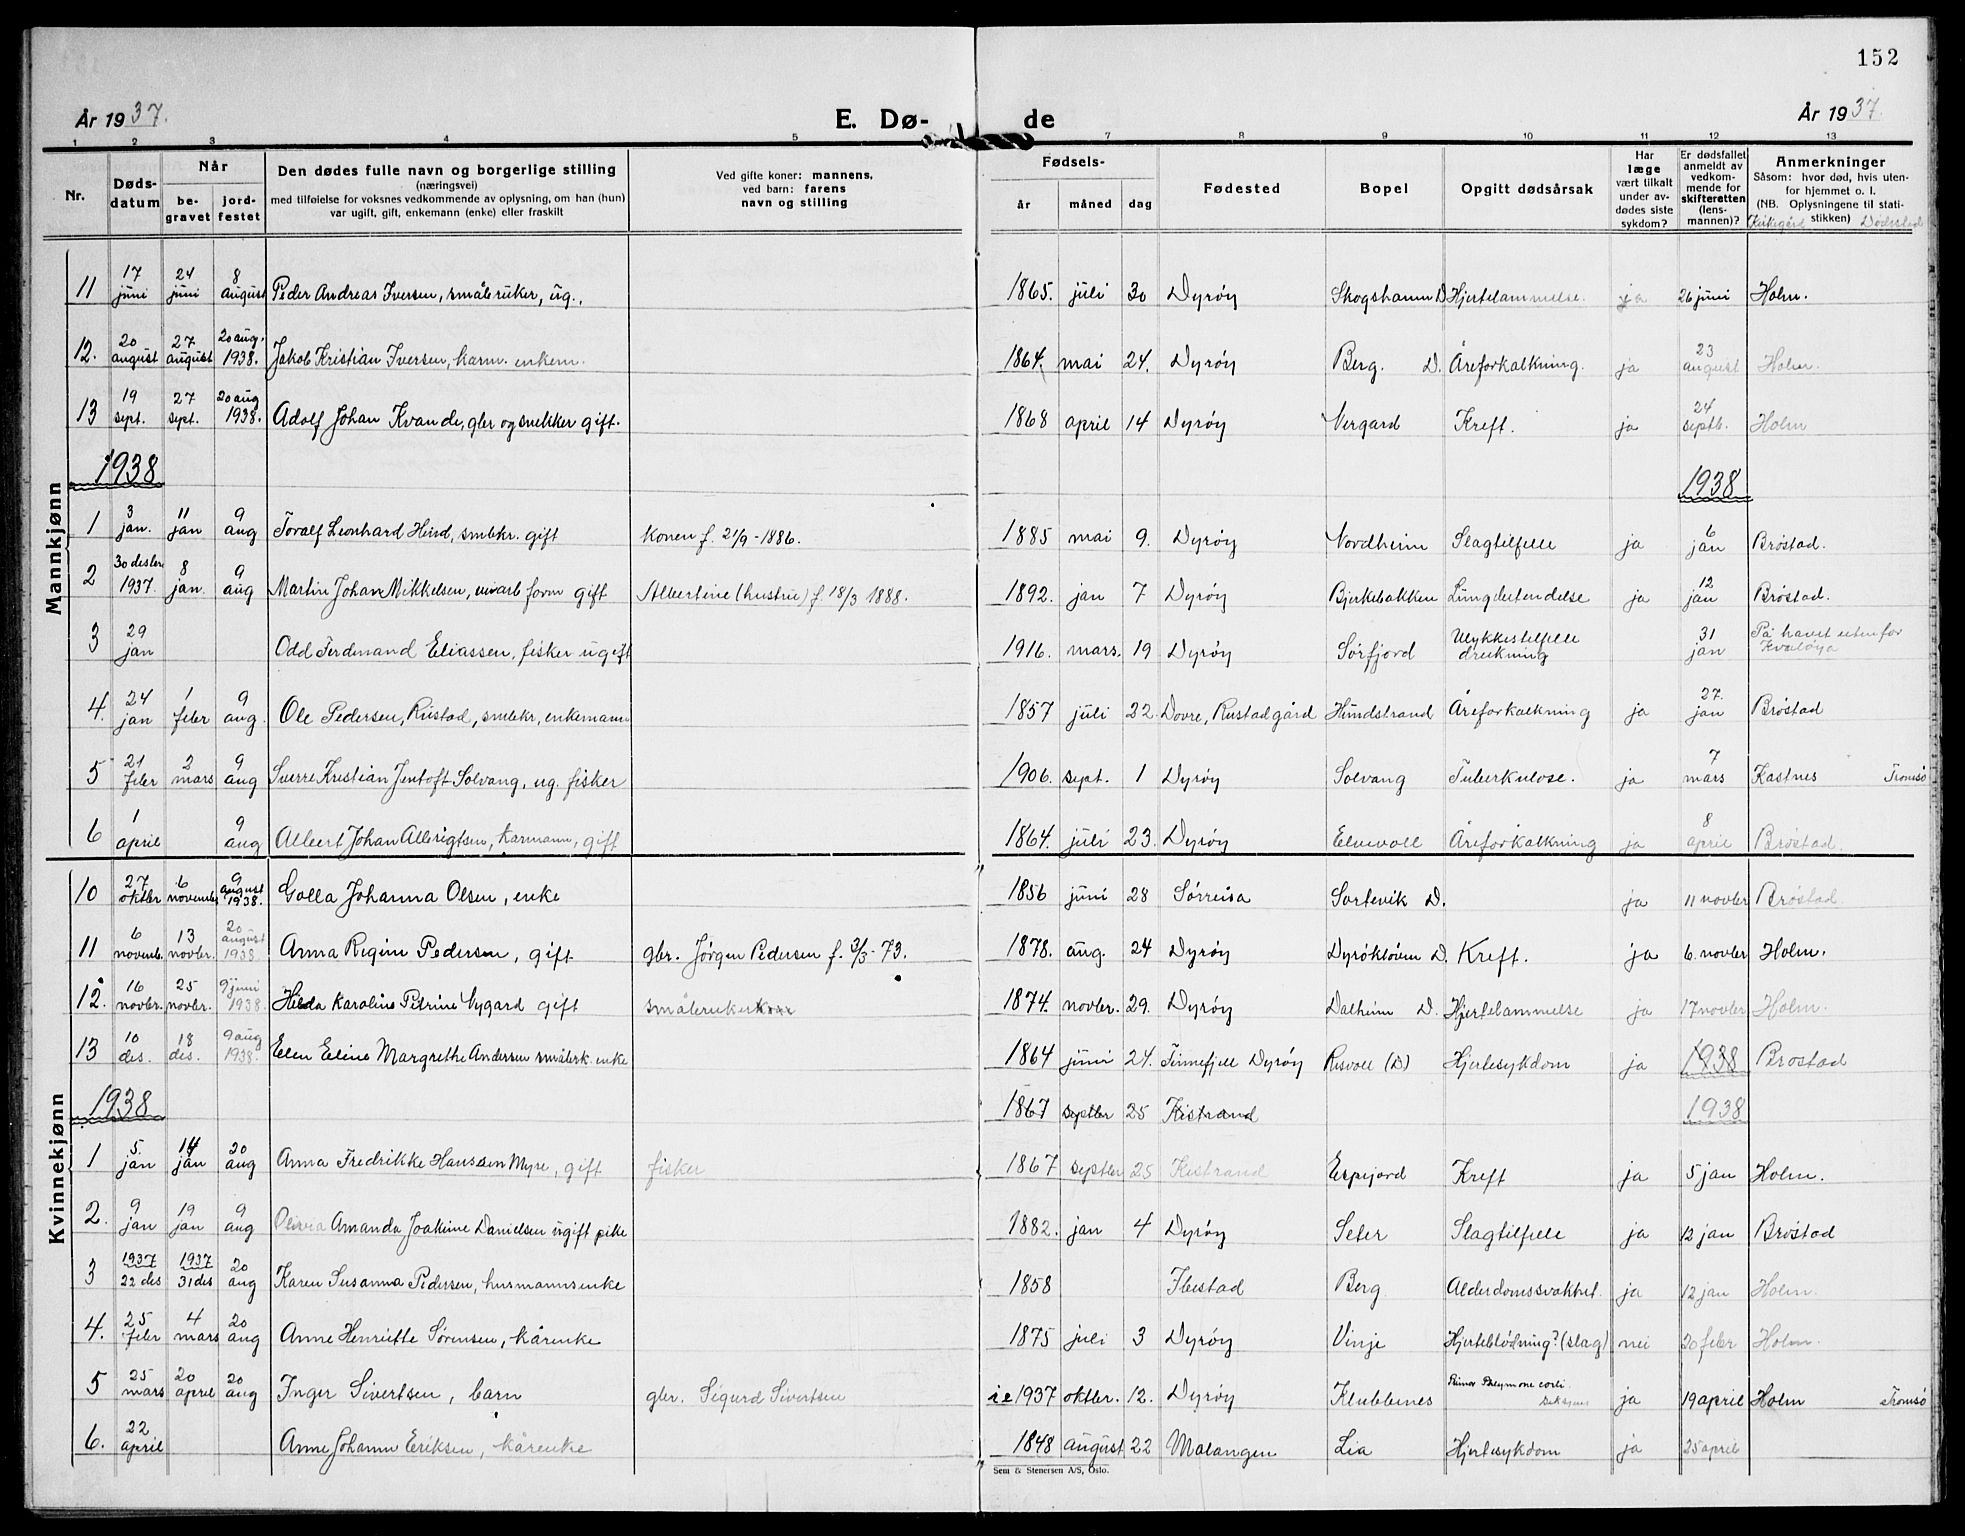 152
År 1937.
E. Dø-
de
År 1937.
1 2 3 4 5 7 8 9 10 11 12 13
Nr.
Døds-
datum
Når
be-
gravet
jord-
festet
Den dødes fulle navn og borgerlige stilling
(næringsvei)
med tilføielse for voksnes vedkommende av oplysning, om han (hun)
var ugift, gift, enkemann (enke) eller fraskilt
Ved gifte koner: mannens,
ved barn: farens
navn og stilling
Fødsels-
år måned dag
Fødested
Bopel
Opgitt dødsårsak
Har
læge
vært tilkalt
under av-
dødes siste
sykdom?
Er dødsfallet
anmeldt av
vedkom-
mende for
skifteretten
(lens-
mannen)?
Anmerkninger
Såsom: hvor død, hvis uten-
for hjemmet o. l.
(NB. Oplysningene til stati-
stikken)
Kirkegård Dødssted
Mannkjønn
11 17 juni 24 juni 8 august Peder Andreas Iversen, småbruker, ug., 1865. juli 30 Dyrøy Skogshamn D Hjertelammelse. ja 26 juni Holm.
12. 20 august 27 august 20 aug. 1938. Jakob Kristian Iversen, karm. enkem. 1864. mai 24. Dyrøy Berg. D. Åreforkalkning. ja 23 august Holm.
13 19 sept. 27 sept. 20 aug 1938. Adolf Johan Kvande, gbr og snekker gift. 1868 april 14 Dyrøy Vergard Kreft. ja 24 septb. Holm
1938 1938
1 3 jan. 11 jan 9 aug Toralf Leonhard Hind, smbkr. gift Konen f. 21/9-1886. 1885 mai 9. Dyrøy Nordheim Slagtilfelle ja 6 jan Brøstad.
2 30 desbr 1937. 8 jan. 9 aug Martin Johan Mikkelsen, form gift Albertine (hustru) f. 18/3 1888. 1892. jan 7 Dyrøy Bjerkebakken Lungebetendelse ja 12 jan Brøstad.
3 29 jan Odd Ferdinand Eliassen, fisker ugift 1916. mars. 19 Dyrøy Sørfjord Ulykkestilfelle drukning 31 jan På havet utenfor Kvaløya
4. 24 jan 1 febr 9 aug. Ole Pedersen, Rustad, smbkr, enkemann 1857 juli 22. Dovre, Rustadgård Hundstrand Åreforkalkning ja 27. jan Brøstad
5 21 febr 2 mars 9 aug Sverre Kristian Jentoft Solvang, ug. fisker 1906. sept. 1 Dyrøy Solvang Tuberkulose. ja 7 mars Kastnes Tromsø
6 1 april 9 aug Albert Johan Albrigtsen, karmann, gift 1864. juli 23. Dyrøy Elvevoll Åreforkalkning ja 8 april Brøstad.
Kvinnekjønn
10 27 oktbr 6 novembr 9 august 1938. Golla Johanna Olsen, enke 1856 juni 28 Sørreisa Sortevik D. ja 11 novbr Brøstad
11 6 novemb. 13 novbr. 20 august 1938 Anna Regine Pedersen, gift gbr. Jørgen Pedersen f. 3/3-73. 1878. aug. 24 Dyrøy Dyrøkloven D. Kreft. ja 6. novbr Holm.
12. 16 novbr. 25 novbr. 9 juni 1938. Hilda Karoline Petrine Nygard gift småbruker 1874. novbr. 29. Dyrøy Dalheim D. Hjertelammelse ja 17 novbr Holm.
13 10 des. 18 des. 9 aug 1938. Elen Eline Margrethe Andersen småbrk. enke 1864 juni 24. Finnefjell Dyrøy Risvoll (D) Hjertesykdom ja 1938 Brøstad
1938 1867 septbr 25 Kistrand 1938
1 5. jan 14 jan 20 aug Anna Fredrikke Hanssen Myre, gift fisker 1867 septbr 25 Kistrand Espejord Kreft ja 5 jan Holm.
2. 9 jan 19 jan 9 aug Olivia Amanda Joakime Danielsen ugift pike 1882. jan 4 Dyrøy Seter Slagtilfelle ja 12 jan Brøstad
3 1937 22 des 1937 31 des 20 aug Karen Susanna Pedersen, husmannsenke 1858 Ibestad Berg Alderdomssvakhet. ja 12 jan Holm.
4. 25 febr 4 mars 20 aug Anne Henriette Sørensen, kårenke 1875 juli 3 Dyrøy Vinje Hjerteblødning? (slag) nei 20 febr Holm.
5 25 mars 20 april 20 aug Inger Sivertsen, barn gbr. Sigurd Sivertsen i e 1937 oktbr. 12. Dyrøy Klubbenes ja 19 april Holm Tromsø
6. 22 april Anne Johanna Eriksen, kårenke 1848 august 22 Malangen Lia Hjertesykdom ja 25 april
Sem & Stenersen A/S, Oslo.